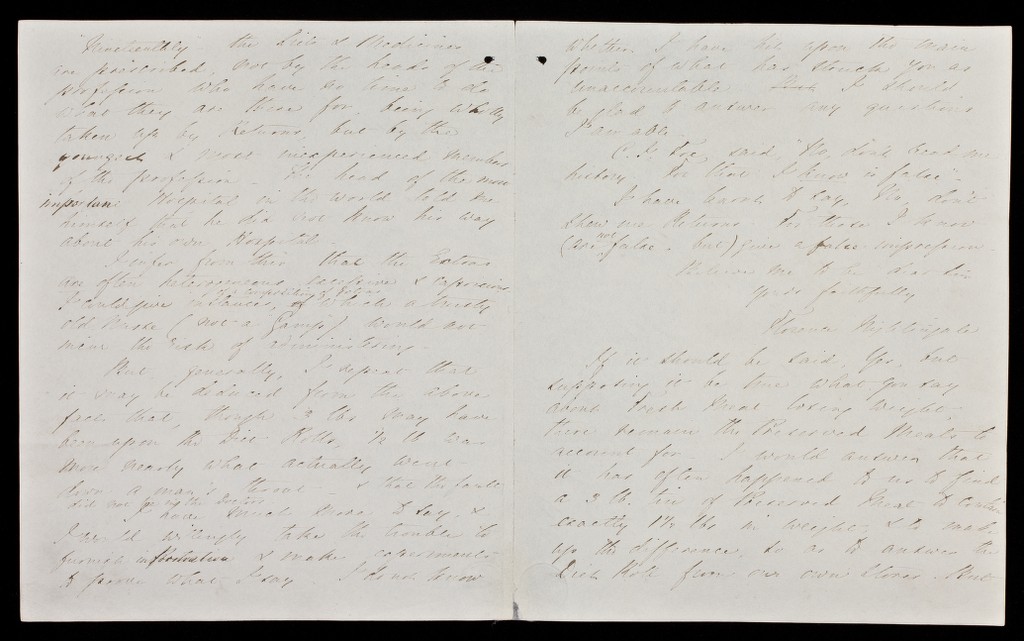 the Diets & Medicines
are prescribed, not by the heads of the
profession who have no time to do
what they are there for, being wholly
taken up by Returns, but by the
youngest & most inexperienced members
of the profession. The head of the most
important Hospital in the world told me
himself that he did not know his way
about his own Hospital.
I infer from this that the Extras
are often heterogeneous, excessive & capricious
I could give instances, of which a trusty
old Nurse (not a Gamp) would not
incur the risk of administering.
But generally, I repeat that
it may be deduced from the above
fact that, though 3 lbs may have
been upon the Diet Rolls, ½ lb was
more nearly what actually went
down a man's throat & that the fault
did not lie with the Doctor
I have much more to say, &
I would willingly take the trouble to
furnish information & make experiments
to prove what I say I do not know
whether I have hit upon the main
points of what has struck you as
unaccountable I should
be glad to answer any questions
I am able.
said, "No, don't read me
history, for that I know is false"
I have learnt to say, No, don't
shew me Returns for those I know
(are not false, but) give a false impression.
Believe me to be dear Sir
Yours faithfully
Florence Nightingale
If it should be said, Yes, but
supposing it be true what you say
about Fresh Meat losing weight,
there remain the Preserved Meats to
account for. I would answer that
it has often happened to us to find
a 3 lb tin of Preserved Meat to contain
exactly 1½ lbs in weight, & to make
up the difference, so as to answer the
Diet Roll from our own Stores. But